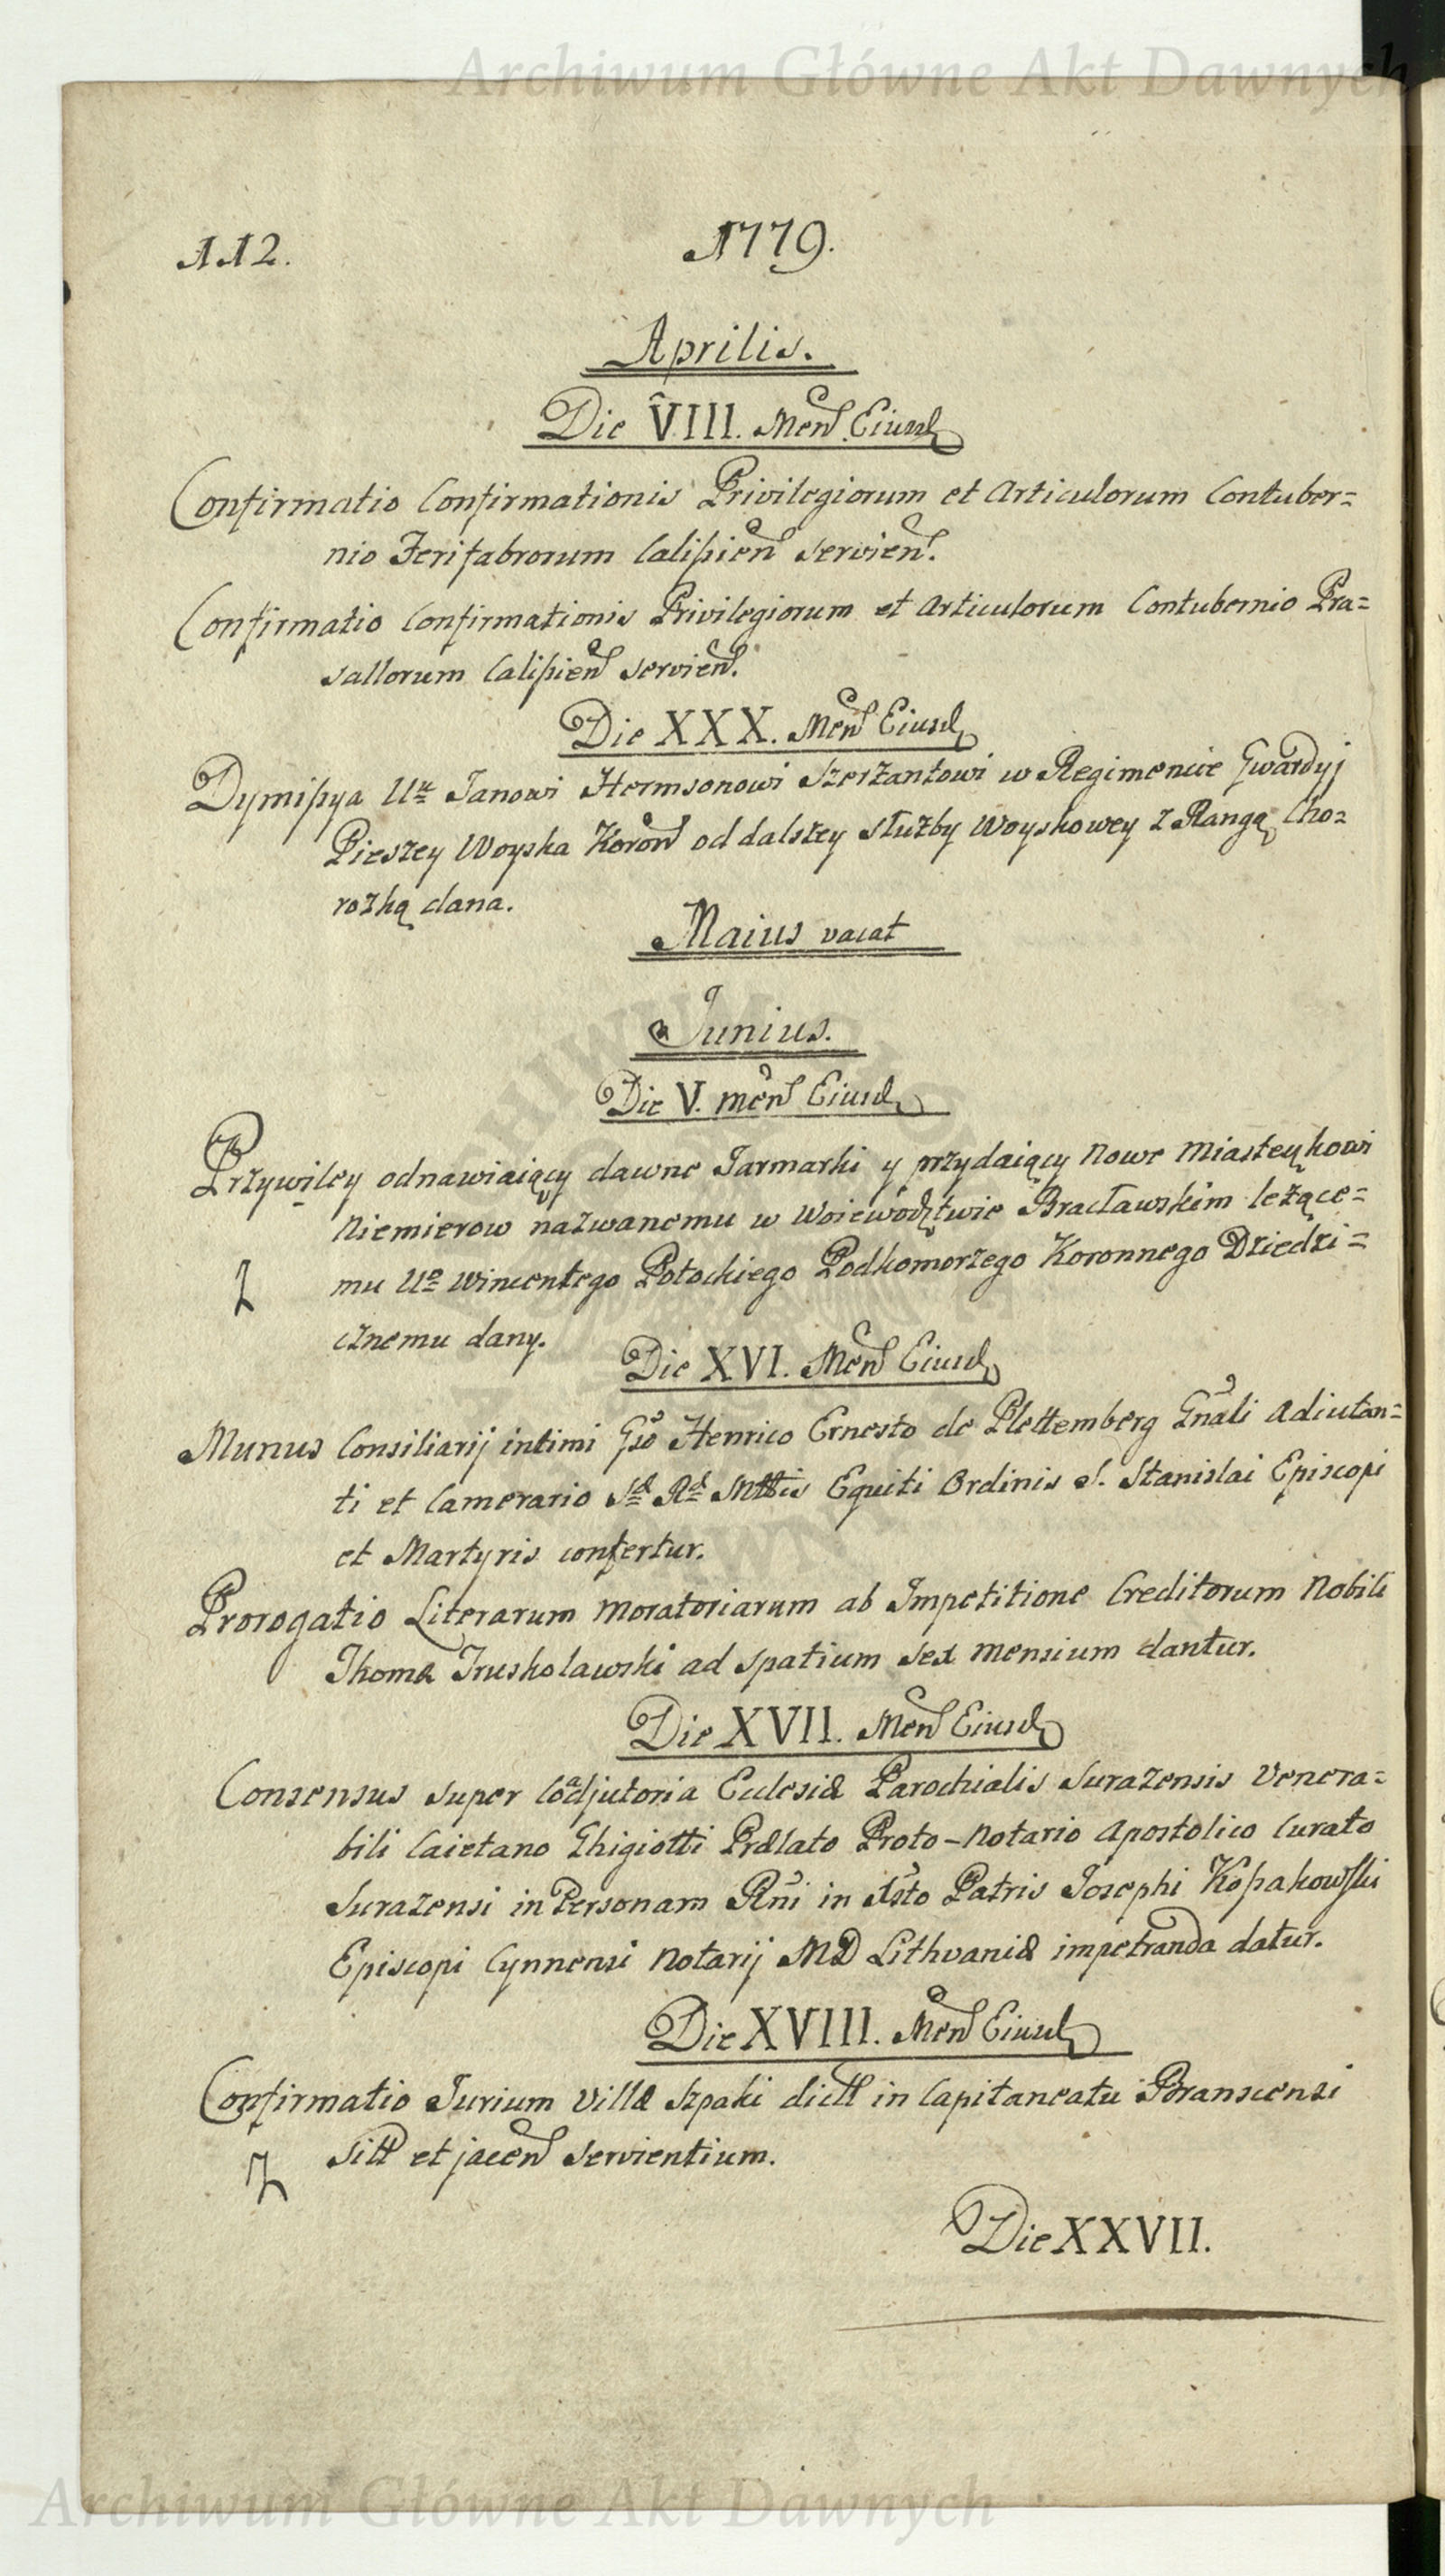 Archiwum Główne Akt Dawnych
112. 1779.
Aprilis.
Die VIII. Men Eiusd
Confirmatio Confirmationis Privilegiorum et Articulorum Contuber=
nio Ferifabrorum Calißien servien.
Confirmatio Confirmationis Privilegiorum et Articulorum Contubernio Pra=
sallorum Calißien servien.
Die XXX. Men Eiusd
Dymißya Ur Janowi Hermsonowi Szerżantowi w Regimencie Gwardyj
Pieszey Woyska Koron od dalszey służby Woyskowey z Rangą Cho=
rożką dana.
Maius vacat
Junius.
Die V. men Eiusd
Przywiley odnawiaiący dawne Jarmarki y przydaiący nowe Miasteykowi
Niemierow nazwanemu w Woiewodztwie Bracławskim leżące=
mu Uo Wincentego Potockiego Podkomorzego Koronnego Dziedzi=
cznemu dany.
Die XVI. Men Eiusd
Munus Consiliarij intimi Gso Henrico Ernesto de Plettemberg Gnali Adiutan=
ti et Camerario Sd Rd Mttis Equiti Ordinis S. Stanislai Episcopi
et Martyris confertur.
Prorogatio Literarum Moratoriarum ab Impetitione Creditorum Nobili
Thomæ Truskolawski ad spatium sex mensium dantur.
Die XVII. Men Eiusd
Consensus super Coadjutoria Ecclesiæ Parochialis Surazensis Venera=
bili Caietano Ghigiotti Prælato Proto-Notario Apostolico Curato
Surazensi in Personam Rni in Xsto Patris Josephi Koßakowski
Episcopi Cynnensi Notarij MD Lithvaniæ impetranda datur.
Die XVIII. Men Eiusd
Confirmatio Jurium Villæ Szpaki dict in Capitaneatu Branscensi
sitt et jacen servientium.
Die XXVII.
Archiwum Główne Akt Dawnych